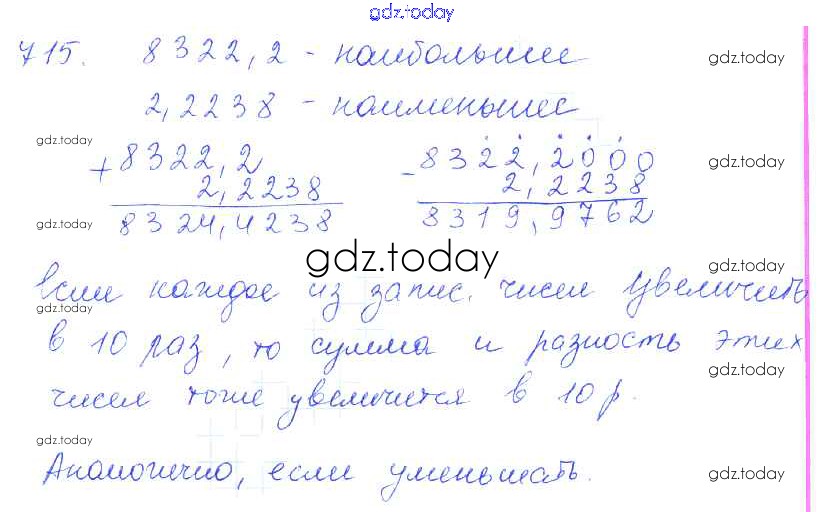 gdz.today
715. 8322,2 - наибольшее
gdz.today
2,2238 - наименьшее
gdz.today
+ 8322,2
2,2238
8324,4238
- 8322,2000
2,2238
8319,9762
gdz.today
gdz.today
gdz.today
gdz.today
Если каждое из запис. чисел увеличить
gdz.today
gdz.today
в 10 раз, то сумма и разность этих
gdz.today
чисел тоже увеличится в 10 р.
gdz.today
Аналогично, если уменьшать.
gdz.today
gdz.today